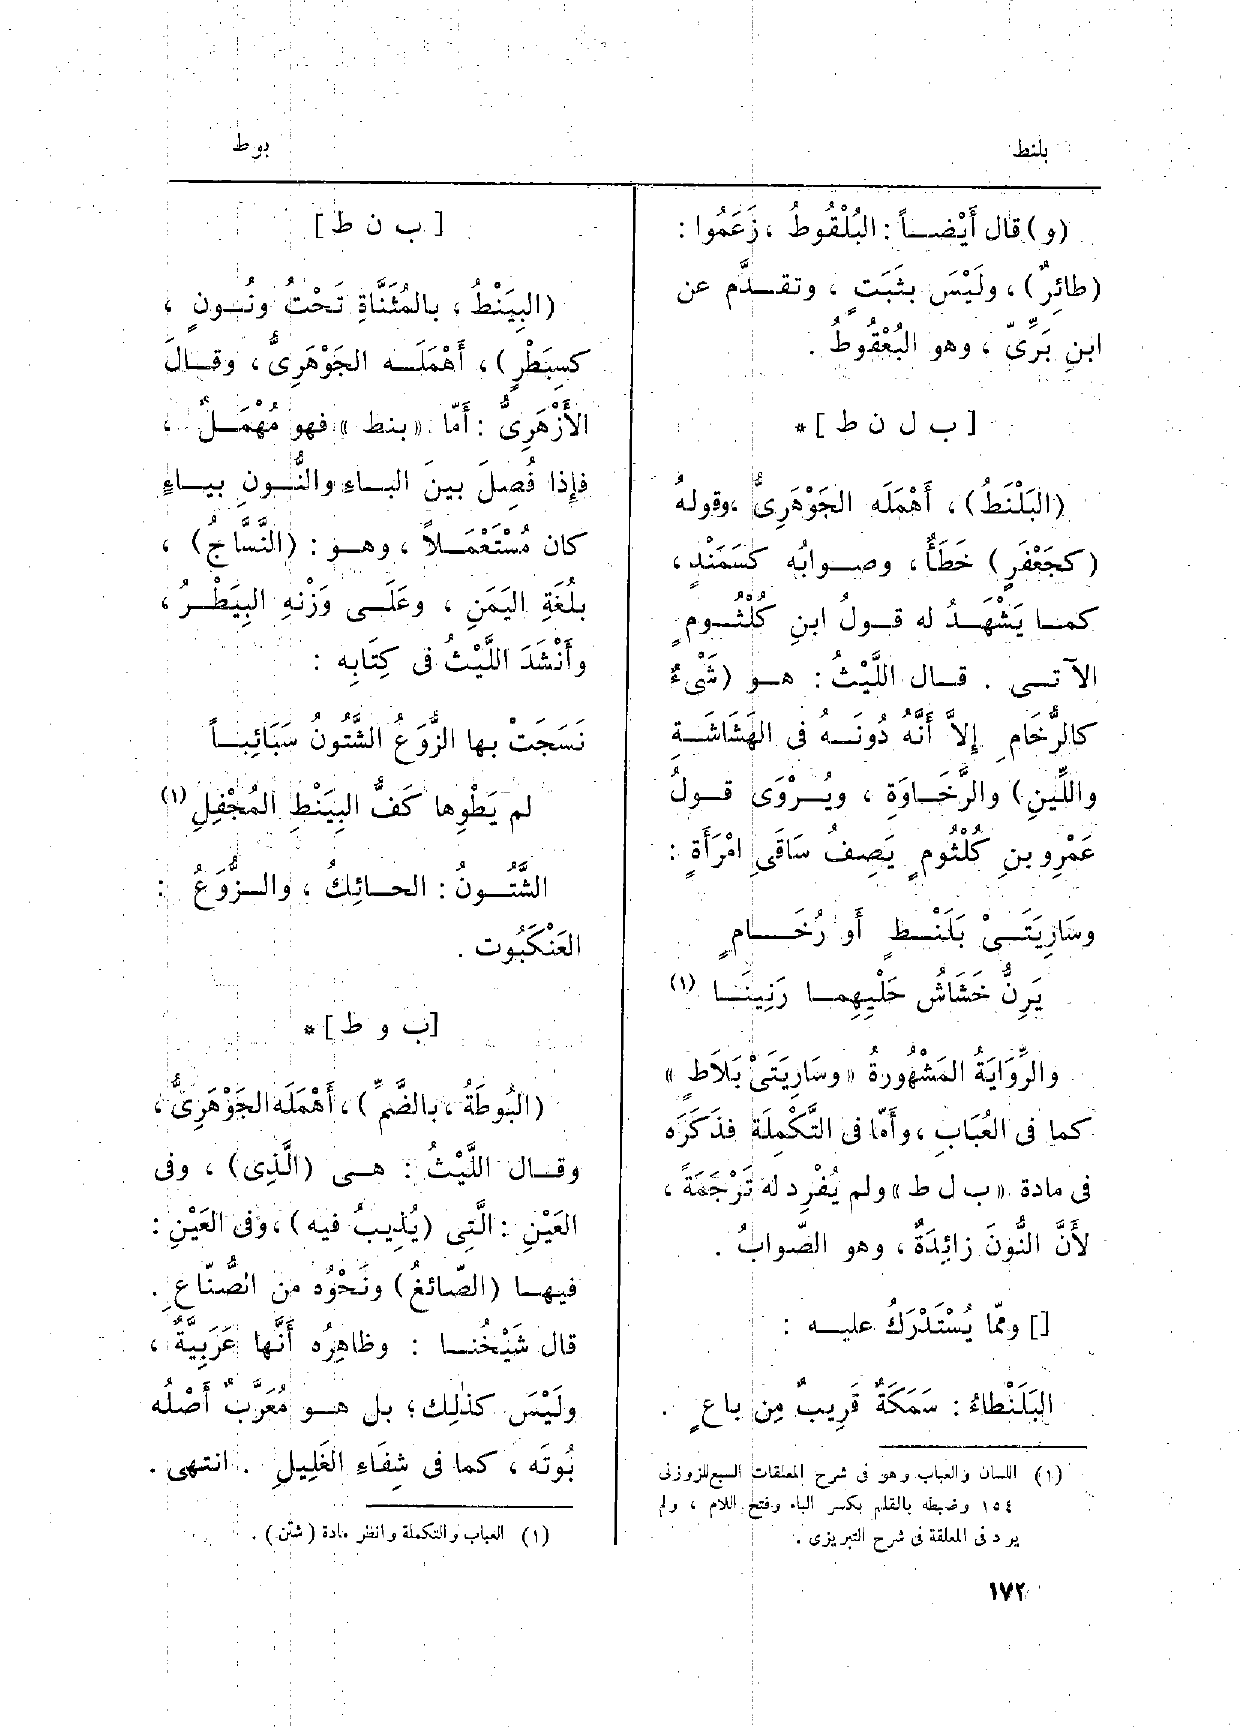 بلنط
بوط
(و) قال أَيْضــاً : البُلْقُوطُ ، زَعَمُوا :
(طائِرٌ) ، ولَيْسَ بثَبَتٍ ، وتقــدَّم عن
ابنِ بَرِّىّ ، وهو البُعْقُوطُ .
[ ب ل ن ط ] *
(البَلْنَطُ) ، أَهْمَلَه الجَوْهَرِىُّ ، وقولهُ
(كجَعْفَرٍ ) خَطَأٌ ، وصــوابُه كسَمَنْدٍ ،
كمــا يَشْهَــدُ له قــولُ ابنِ كُلْثُــومٍ
الآتــى . قــال اللَّيْثُ : هــو (شَىْءٌ
كالرُّخَامِ إِلاَّ أَنَّهُ دُونَــهُ فى الهَشَاشَــةِ
واللِّينِ) والرَّخَــاوَةِ ، ويُــرْوَى قــولُ
عَمْرِو بنِ كُلْثُومٍ يَصِفُ سَاقَىِ امْرَأَةٍ :
وسَارِيَتَــىْ بَلَنْــطٍ أَو رُخَــــامٍ
يَرِنُّ خَشَاشُ حَلْيِهِمــا رَنِينَــا (١)
والرِّوَايَةُ المَشْهُورةُ «وسَارِيَتَىْ بَلاَطٍ »
كما فى العُبَابِ ، وأَمّا فى التَّكْمِلَة فذَكَرَه
فى مادة «ب ل ط » ولم يُفْرِد له تَرْجَمَةً ،
لأَنَّ النُّونَ زائِدَةٌ ، وهو الصَّوابُ .
[] وممّا يُسْتَدْرَكُ عليــه :
البَلَنْطاءُ : سَمَكَةٌ قَرِيبٌ مِن باعٍ .
(١) اللسان والعباب وهو فى شرح المعلقات السبع للزوزنى
١٥٤ وضبطه بالقلم بكسر الباء وفتح اللام ، ولم
يرد فى المعلقة فى شرح التبريزى .
[ ب ن ط ]
(البِيَنْطُ ، بالمُثَنَّاةِ تَحْتُ ونُــونٍ ،
كسِبَطْرٍ ) ، أَهْمَلَــه الجَوْهَرِىُّ ، وقــالَ
الأَزْهَرِىُّ : أَمّا «بنط » فهو مُهْمَــلٌ ،
فإِذا فُصِلَ بينَ البــاءِ والنُّــونِ بيــاءٍ
كان مُسْتَعْمَــلاً ، وهــو : (النَّسَّاج) ،
بلُغَةِ اليَمَنِ ، وعَلَــى وَزْنهِ البِيَطْــرُ ،
وأَنْشَدَ اللَّيْثُ فى كِتَابِه :
نَسَجَتْ بها الزُّوَعُ الشَّتُونُ سَبَائِبــاً
لم يَطْوِها كَفُّ البِيَنْطِ المُجْفِلِ (١)
الشَّتُــونُ : الحــائِكُ ، والــزُّوَعُ :
العَنْكَبُوت .
[ب و ط ] *
(البُوطَةُ ، بالضَّمِّ ) ، أَهْمَلَه الجَوْهَرِىُّ ،
وقــال اللَّيْثُ : هــى (الَّذِى) ، وفى
العَيْنِ : الَّتِى (يُذِيبُ فيه ) ، وفى العَيْنِ :
فيهــا (الصّائغُ) ونَحْوُه من الصُّنّاعِ .
قال شَيْخُنــا : وظاهِرُه أَنَّها عَرَبِيَّةٌ ،
ولَيْسَ كذلِك ؛ بل هــو مُعَرَّبٌ أَصْلُه
بُوتَه ، كما فى شِفَاءِ الغَلِيلِ . انتهى .
(١) العباب والتكملة وانظر مادة ( شتن ) .
١٧٢